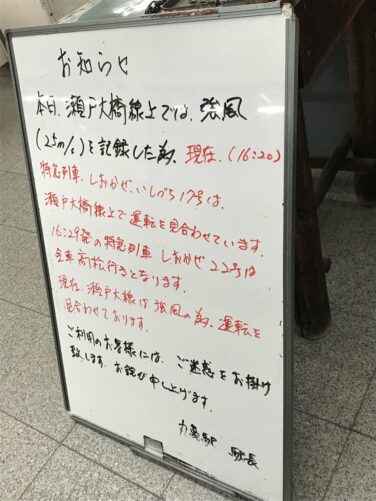 お知らせ
本日、瀬戸大橋線上では、強風
(25m/s)を記録した為、現在、(16:20)
特急列車、しおかぜ、いしづち17号は、
瀬戸大橋線上で運転を見合わせています。
16:29発の特急列車 しおかぜ22号は
全車高松行きとなります。
現在、瀬戸大線は強風の為、運転を
見合わせております。
ご利用のお客様には、ご迷惑をお掛け
致します。お詫び申し上げます。
丸亀駅 駅長